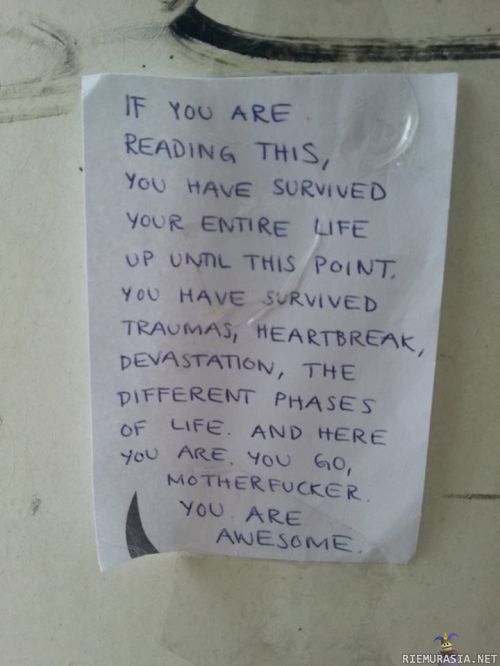 IF YOU ARE
READING THIS,
YOU HAVE SURVIVED
YOUR ENTIRE LIFE
UP UNTIL THIS POINT.
YOU HAVE SURVIVED
TRAUMAS, HEARTBREAK,
DEVASTATION, THE
DIFFERENT PHASES
OF LIFE. AND HERE
YOU ARE. YOU GO,
MOTHERFUCKER.
YOU ARE
AWESOME.
RIEMURASIA.NET